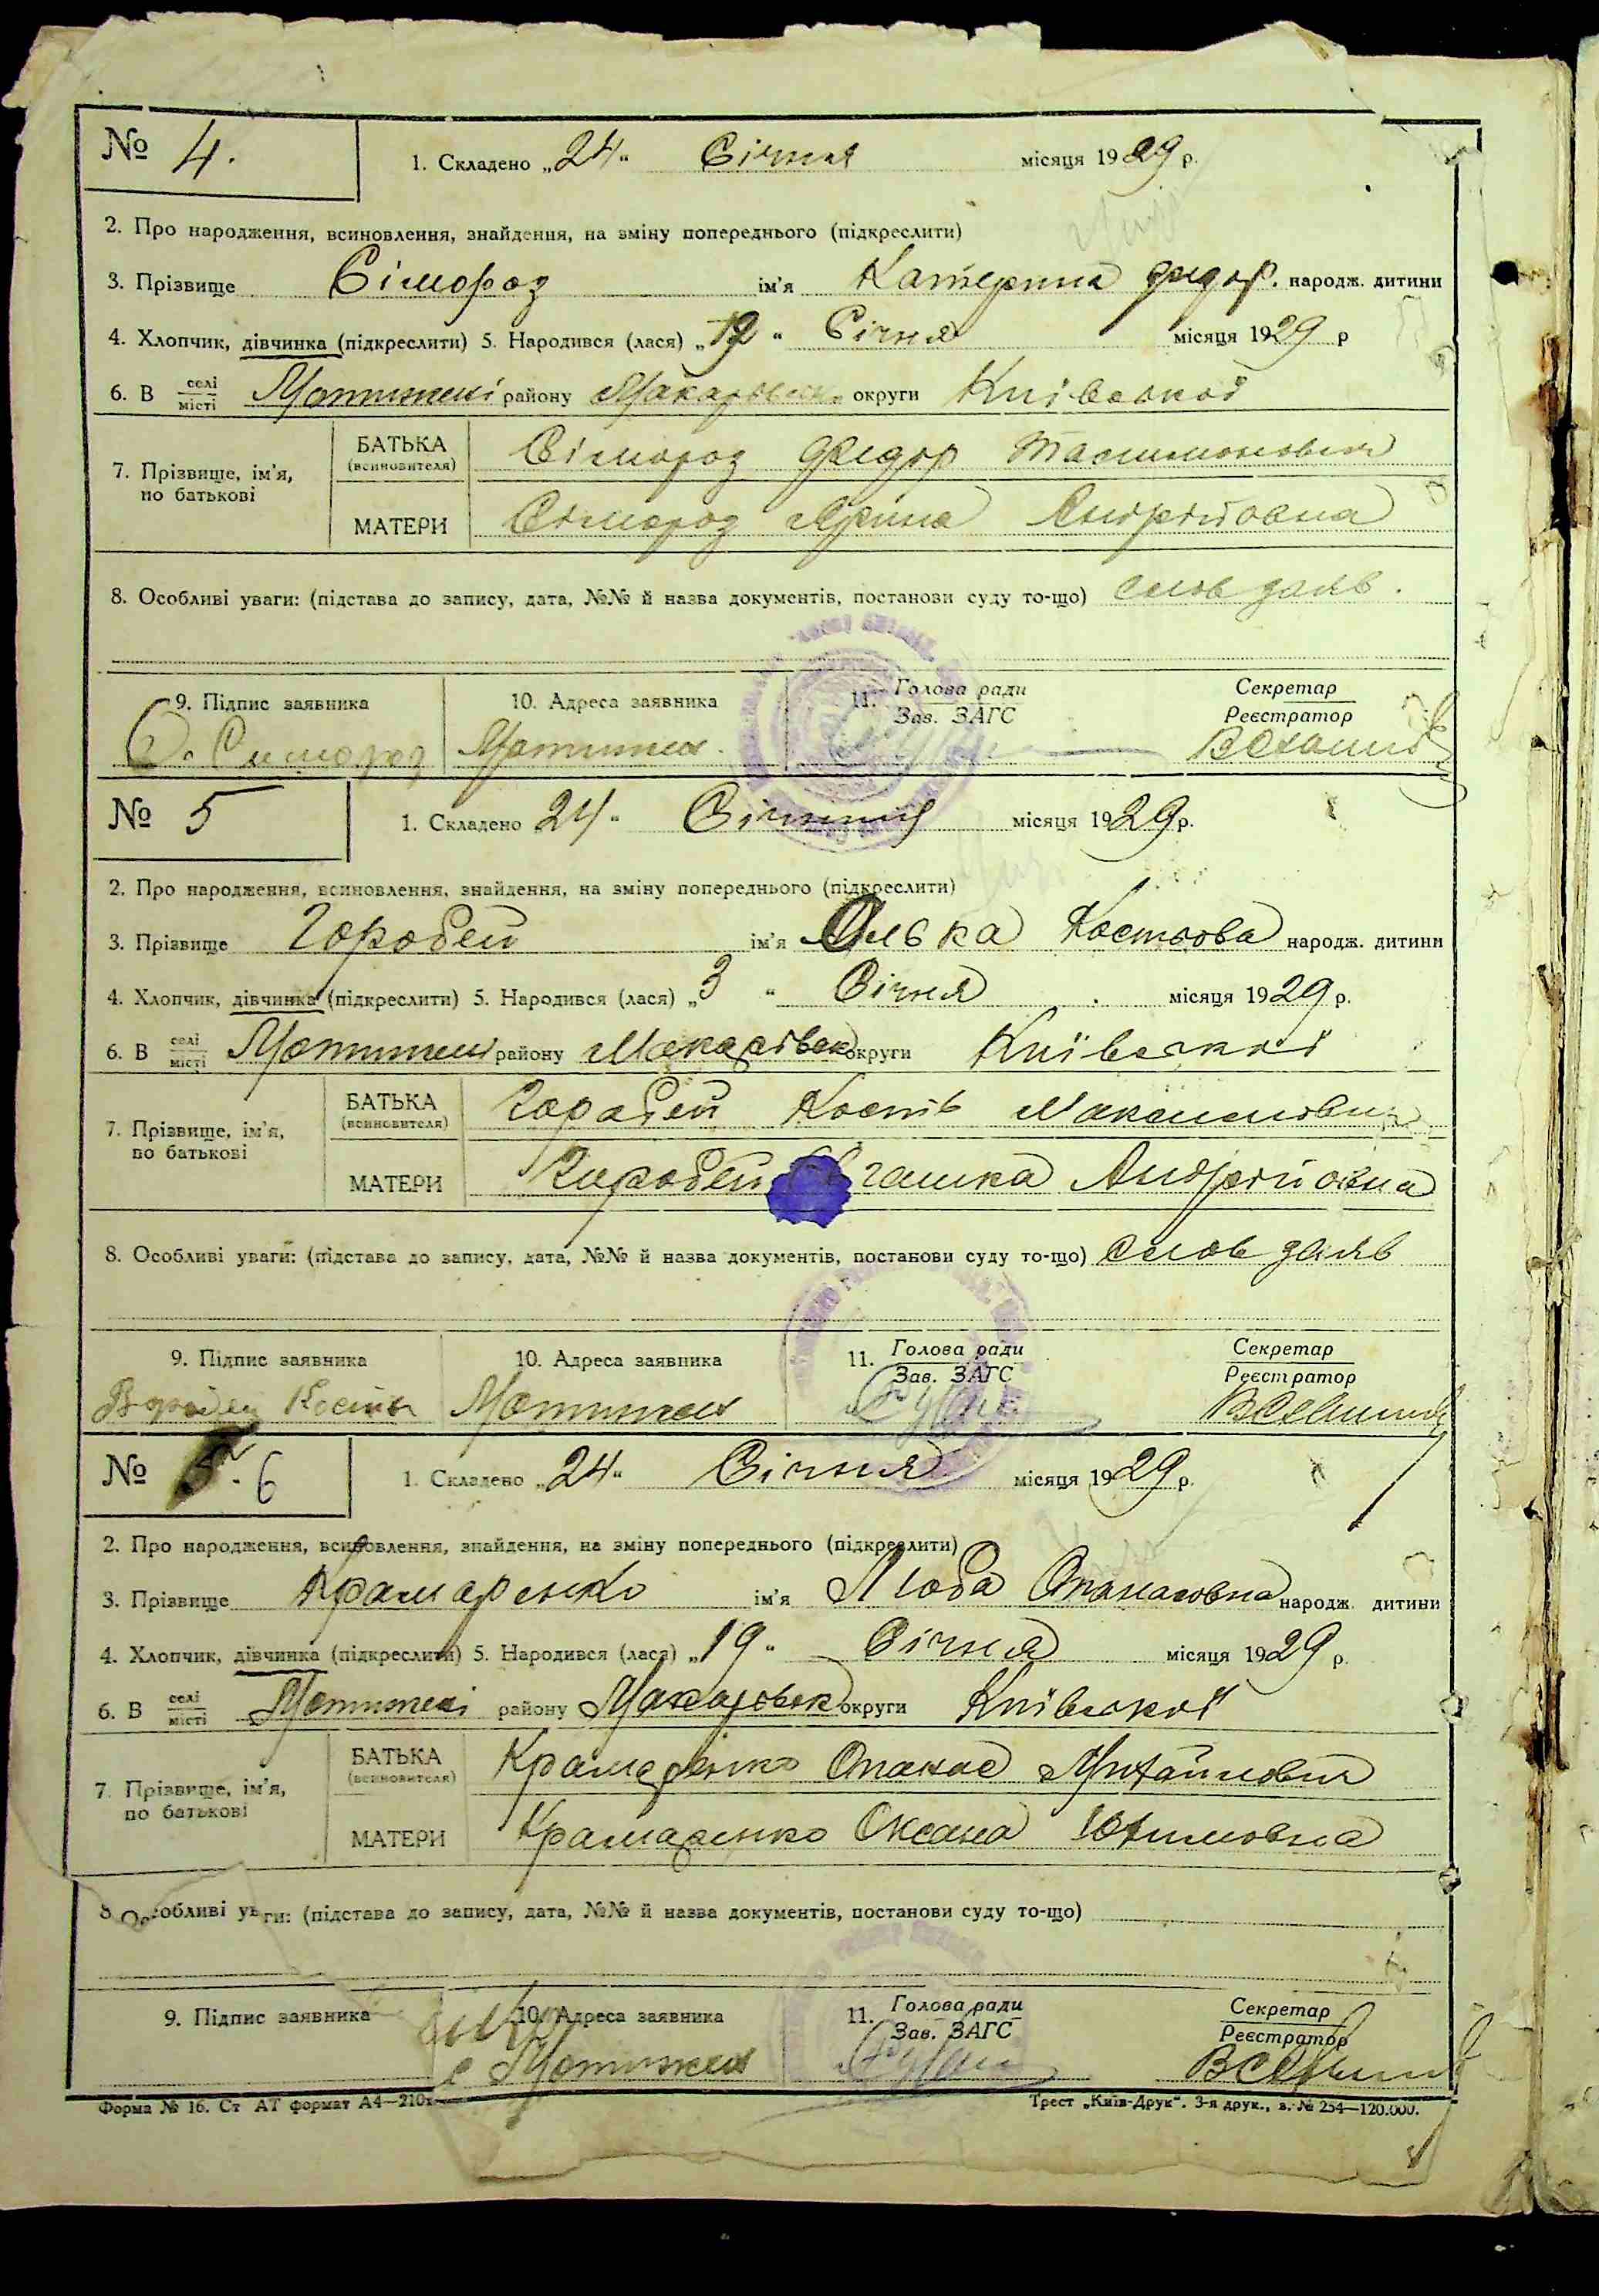 № 4. 1. Складено „24“ Січня місяця 1929 р.
2. Про народження, всиновлення, знайдення, на зміну попереднього (підкреслити)
3. Прізвище Сімороз ім'я Катерина Федор. народж. дитини
4. Хлопчик, дівчинка (підкреслити) 5. Народився (лася) „ “ Січня місяця 1929 р
6. В селі місті Мотижені району Макарівськ. округи Київської
7. Прізвище, ім'я, по батькові
БАТЬКА (всиновителя) Сімороз Федор
МАТЕРИ Сімороз Ярина Андрійовна
8. Особливі уваги: (підстава до запису, дата, №№ й назва документів, постанови суду то-що) слов заяв.
9. Підпис заявника 10. Адреса заявника 11. Голова ради Зав. ЗАГС Секретар Реєстратор
Симороз Мотижен.
№ 5 1. Складено 24“ Січня місяця 1929 р.
2. Про народження, всиновлення, знайдення, на зміну попереднього (підкреслити)
3. Прізвище Горобей ім'я Олька Костьова народж. дитини
4. Хлопчик, дівчинка (підкреслити) 5. Народився (лася) „3“ Січня місяця 1929 р.
6. В селі місті Мотижені району Макарівськ округи Київської
7. Прізвище, ім'я, по батькові
БАТЬКА (всиновителя) Горобей Кость Максимович
МАТЕРИ Горобей Андрійовна
8. Особливі уваги: (підстава до запису, дата, №№ й назва документів, постанови суду то-що) слов заяв
9. Підпис заявника 10. Адреса заявника 11. Голова ради Зав. ЗАГС Секретар Реєстратор
Мотижен
№ 6 1. Складено „24“ Січня місяця 1929 р.
2. Про народження, всиновлення, знайдення, на зміну попереднього (підкреслити)
3. Прізвище Крамаренко ім'я Люба Опанасовна народж. дитини
4. Хлопчик, дівчинка (підкреслити) 5. Народився (лася) „19“ Січня місяця 1929 р.
6. В селі місті Мотижені району Макарівськ округи Київської
7. Прізвище, ім'я, по батькові
БАТЬКА (всиновителя) Крамаренко Опанас Михайлович
МАТЕРИ Крамаренко Оксана Юхимовна
8. Особливі уваги: (підстава до запису, дата, №№ й назва документів, постанови суду то-що)
9. Підпис заявника 10. Адреса заявника 11. Голова ради Зав. ЗАГС Секретар Реєстратор
с Мотижен
Форма № 16. Ст АТ формат А4—210х
Трест „Київ-Друк“. 3-я друк., з. № 254—120.000.